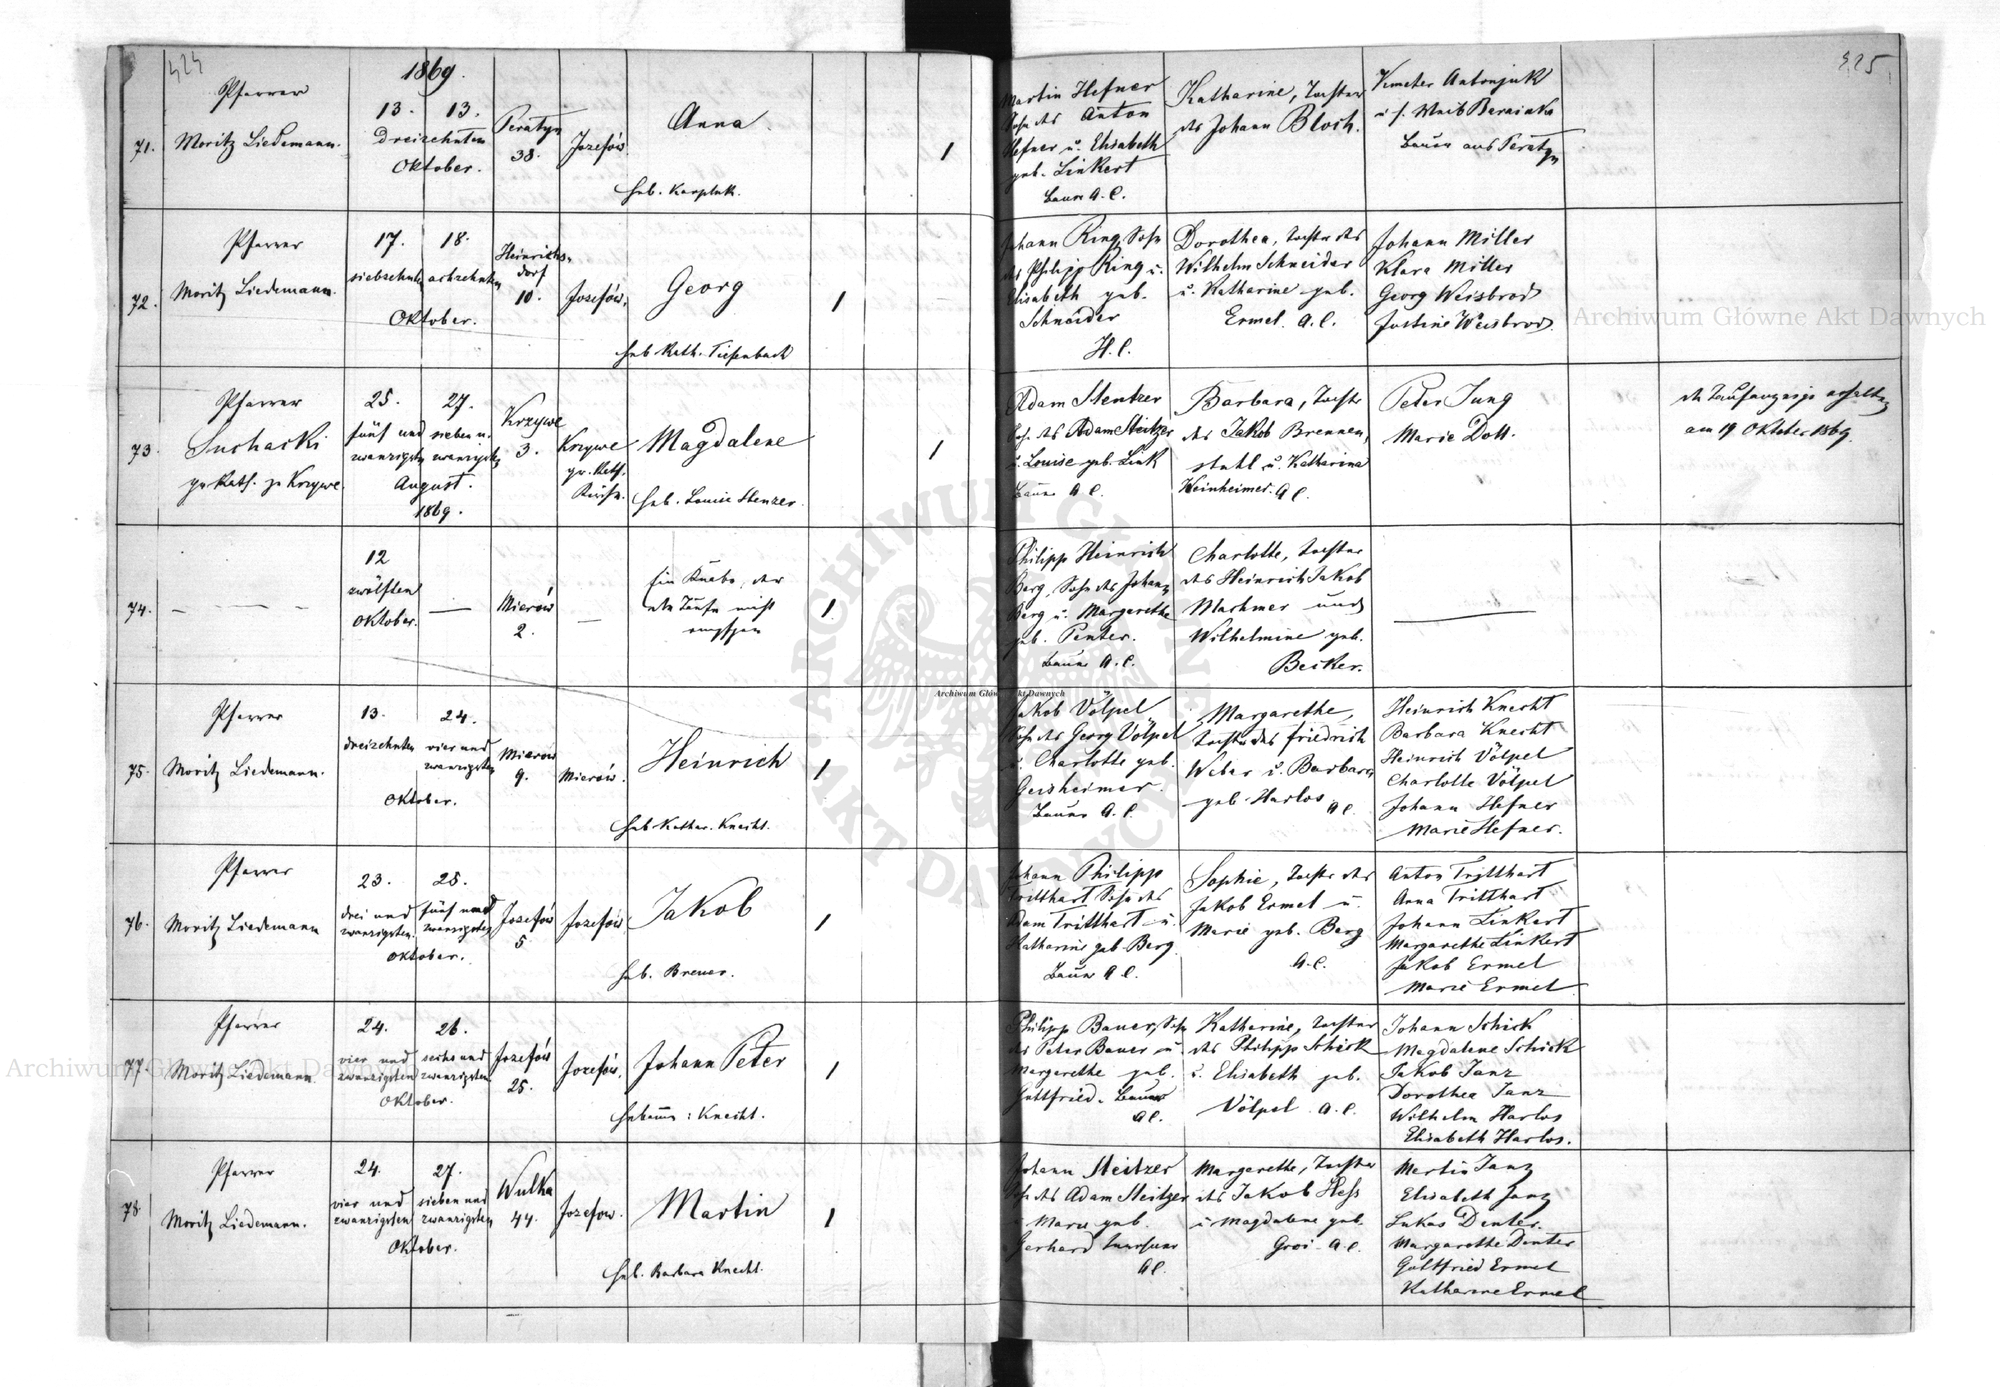 424
1869.
325
71.
Pfarrer
Moritz Liedemann.
13. 13.
dreizehnten
Oktober.
Peratyn
38.
Jozefów
Anna.
Heb. Karpluk.
1
Martin Hefner
Sohn des Anton
Hefner u. Elisabeth
geb. Linkert
Bauer A. C.
Katharine, Tochter
des Johann Bloch.
Antonjuk
u. s. Weib
Bauern aus Peratyn
72.
Pfarrer
Moritz Liedemann.
17. 18.
siebzehnten achtzehnten
Oktober.
Heinrichs-
dorf
10.
Jozefów.
Georg
Heb. Kath. Tiefenbach
1
Johann Ring, Sohn
des Philipp Ring u.
Elisabeth geb.
Schneider
H. C.
Dorothea, Tochter des
Wilhelm Schneider
u. Katharine geb.
Ermel. A. C.
Johann Miller
Klara Miller
Georg Weisbrod
Justine Weisbrod.
73.
Pfarrer
Suchacki
zu Krzywe.
25. 27.
fünf und sieben u.
zwanzigsten zwanzigsten
August.
1869.
Krzywe
3.
Krzywe
gr. Kath.
Kirche.
Magdalene
Heb. Louise Stenzer.
1
Adam Stentzer
Sohn des Adam Steitzer
u. Louise geb. Link
Bauer A. C.
Barbara, Tochter
des Jakob Brennen-
stuhl u. Katharina
Weinheimer. A. C.
Peter Jung
Marie Doll.
am 19 Oktober 1869.
74.
12
zwölften
Oktober.
Mierów
2.
Ein Knabe, der
die Taufe nicht
empfgen
1.
Philipp Heinrich
Berg, Sohn des Johann
Berg u. Margarethe
geb. Penter.
Bauer A. C.
Charlotte, Tochter
des Heinrich Jakob
Machmer und
Wilhelmine geb.
Becker.
75.
Pfarrer
Moritz Liedemann.
13. 24.
dreizehnten vier und
zwanzigsten
Oktober.
Mierow
9.
Mierów.
Heinrich
Heb. Kathar. Knecht.
1
Jakob Völpel
Sohn des Georg Völpel
u. Charlotte geb.
Geisheimer.
Bauer A. C.
Margarethe,
Tochter des Friedrich
Weber u. Barbara
geb. Harlos A. C.
Heinrich Knecht
Barbara Knecht
Heinrich Völpel
Charlotte Völpel
Johann Hefner
Marie Hefner.
76.
Pfarrer
Moritz Liedemann
23. 25.
drei und fünf und
zwanzigsten. zwanzigsten
Oktober.
Jozefów
5
Jozefów.
Jakob
Heb. Brener.
1
Johann Philipp
Tritthart Sohn des
Adam Tritthart u.
Katharine geb. Berg
Bauer A. C.
Sophie, Tochter des
Jakob Ermel u.
Marie geb. Berg
A. C.
Anton Tritthart
Anna Tritthart
Johann Linkert
Margarethe Linkert
Jakob Ermel
Marie Ermel
77
Pfarrer
Moritz Liedemann.
24. 26.
vier und sechs und
zwanzigsten zwanzigsten
Oktober.
Jozefów
25.
Jozefów.
Johann Peter
Hebamm: Knecht.
1
Philipp Bauer, Sohn
des Peter Bauer u.
Margarethe geb.
Gottfried. Bauer
A. C.
Katharine, Tochter
des Philipp Schick
u. Elisabeth geb.
Völpel A. C.
Johann Schick
Magdalene Schick
Jakob Janz
Dorothea Janz
Wilhelm Harlos
Elisabeth Harlos.
78.
Pfarrer
Moritz Liedemann.
24. 27.
vier und sieben und
zwanzigsten zwanzigsten
Oktober.
Wulka
44.
Jozefow.
Martin
Heb. Barbara Knecht.
1
Johann Steitzer
Sohn des Adam Steitzer
u Marie geb.
Gerhard
A. C.
Margarethe, Tochter
des Jakob Hess
u Magdalene geb.
Groi. A. C.
Martin Janz
Elisabeth Janz
Lukas Denter.
Margarethe Denter
Gottfried Ermel
Katharine Ermel
Archiwum Główne Akt Dawnych
Archiwum Główne Akt Dawnych
Archiwum Główne Akt Dawnych
ARCHIWUM GŁÓWNE AKT DAWNYCH